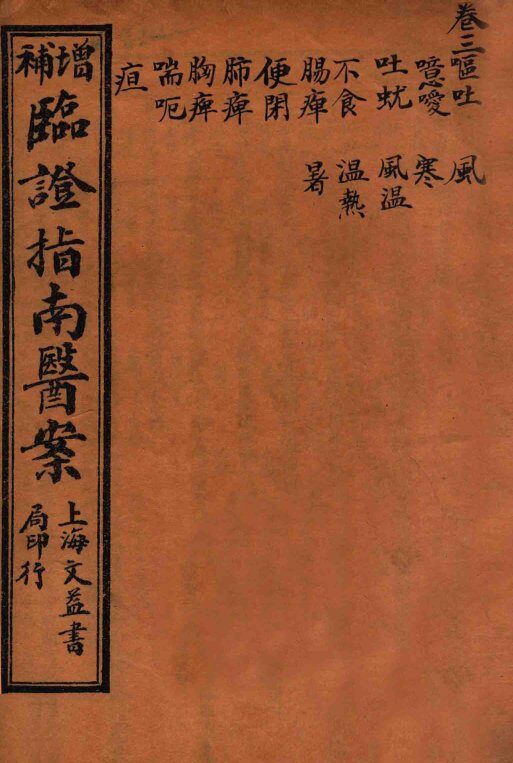 卷三嘔吐 風
噫噯 寒
吐蚘 風温
不食 温熱
腸痺 暑
便閉
肺痺
胸痺
喘呃
疸
增補
臨證指南醫案
上海文益書
局印行